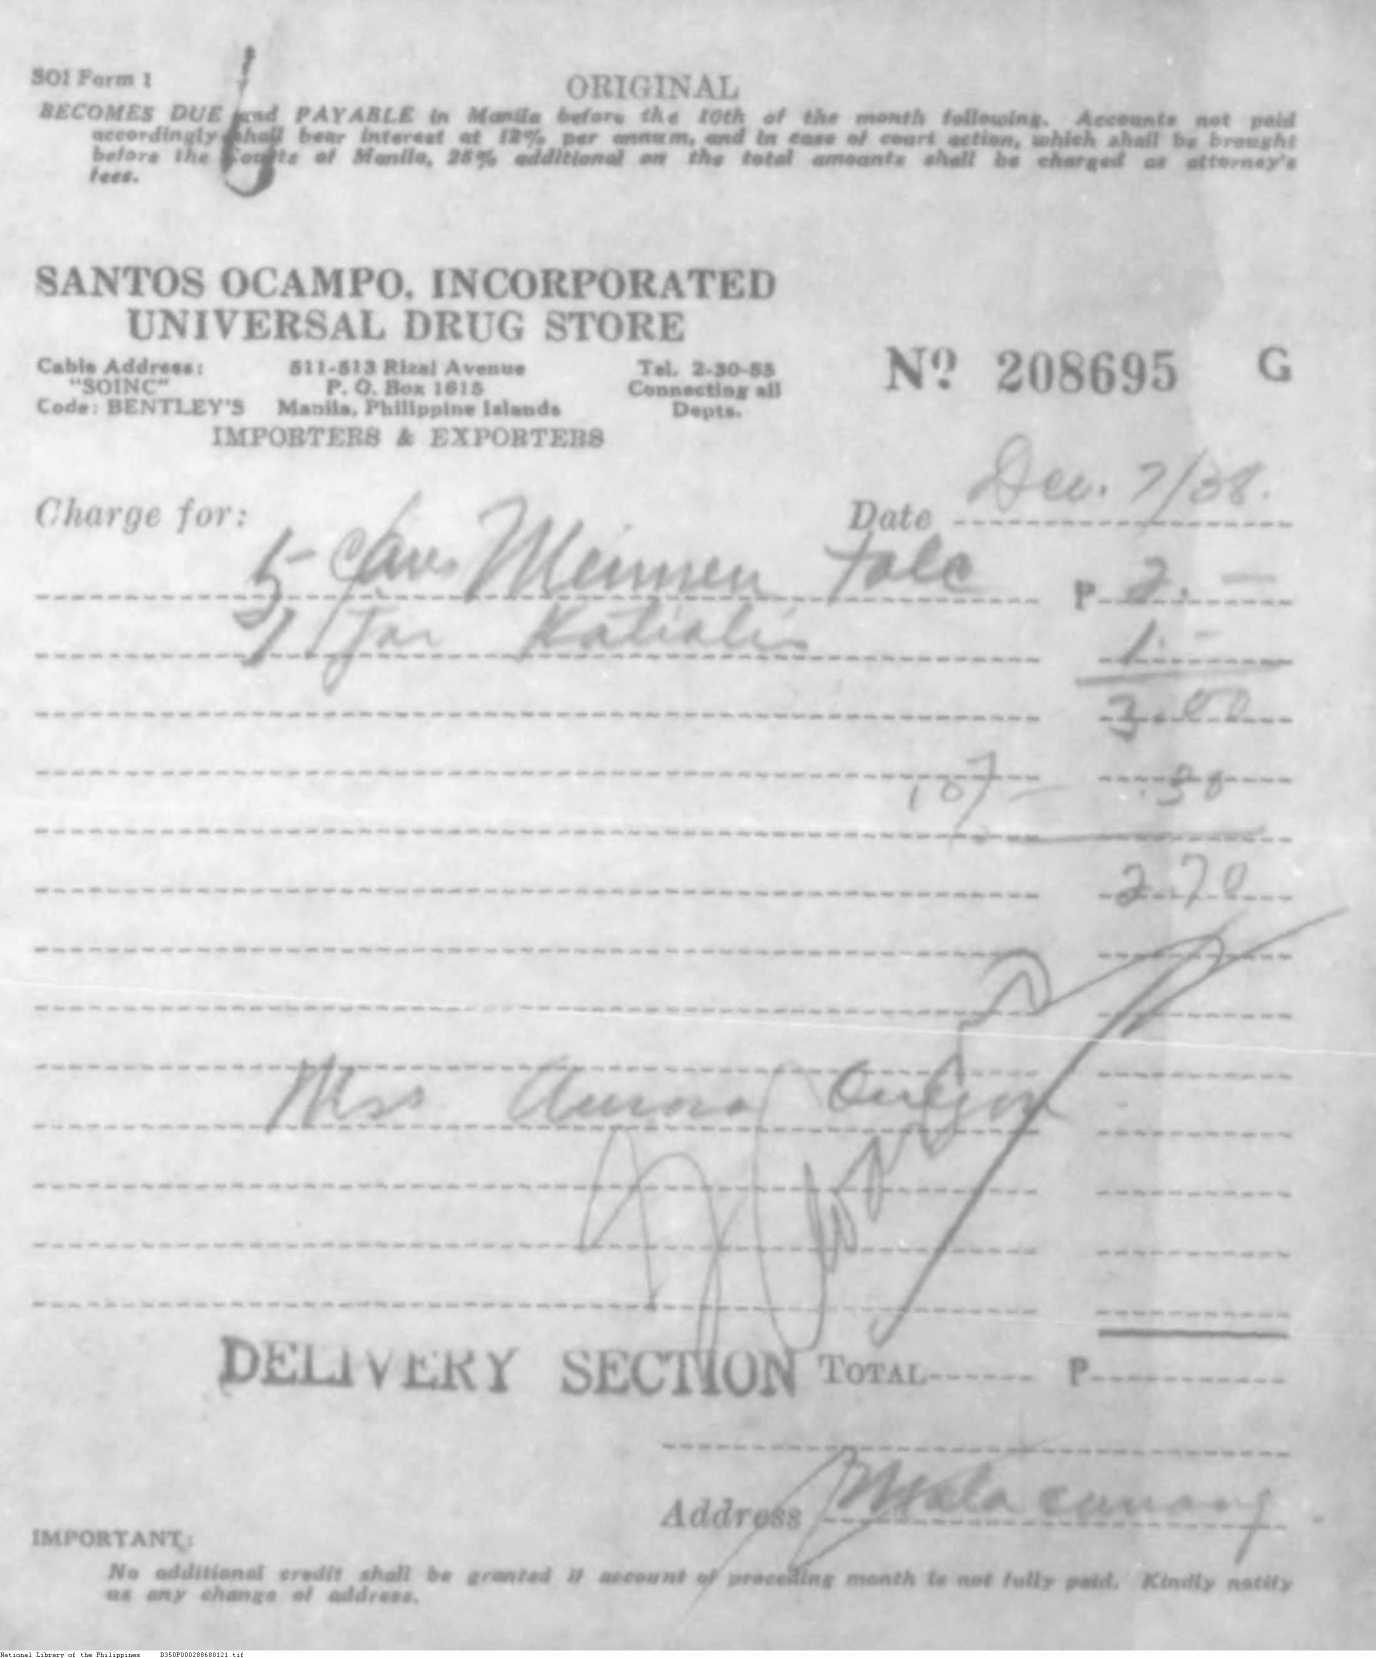 SOI Form 1
ORIGINAL
BECOMES DUE and PAYABLE in Manila before the 10th of the month following. Accounts not paid
accordingly shall bear interest at 12% per annum, and in case of court action, which shall be brought
before the Courts of Manila, 25% additional on the total amounts shall be charged as attorney's
fees.
SANTOS OCAMPO, INCORPORATED
UNIVERSAL DRUG STORE
Cable Address: 511-513 Rizal Avenue Tel. 2-30-55
"SOINC" P. O. Box 1615 Connecting all
Code: BENTLEY'S Manila, Philippine Islands Depts.
IMPORTERS & EXPORTERS
Nº 208695 G
Charge for: Date Dec. 7/38.
5- Cans Mennen Talc P 2. —
1 Jar Katialis 1. —
3.00
10% — .30
2.70
Miss Aurora Quezon
DELIVERY SECTION TOTAL P
Address Malacanang
IMPORTANT:
No additional credit shall be granted if account of preceding month is not fully paid. Kindly notify
as any change of address.
National Library of the Philippines B350P000288680121.tif